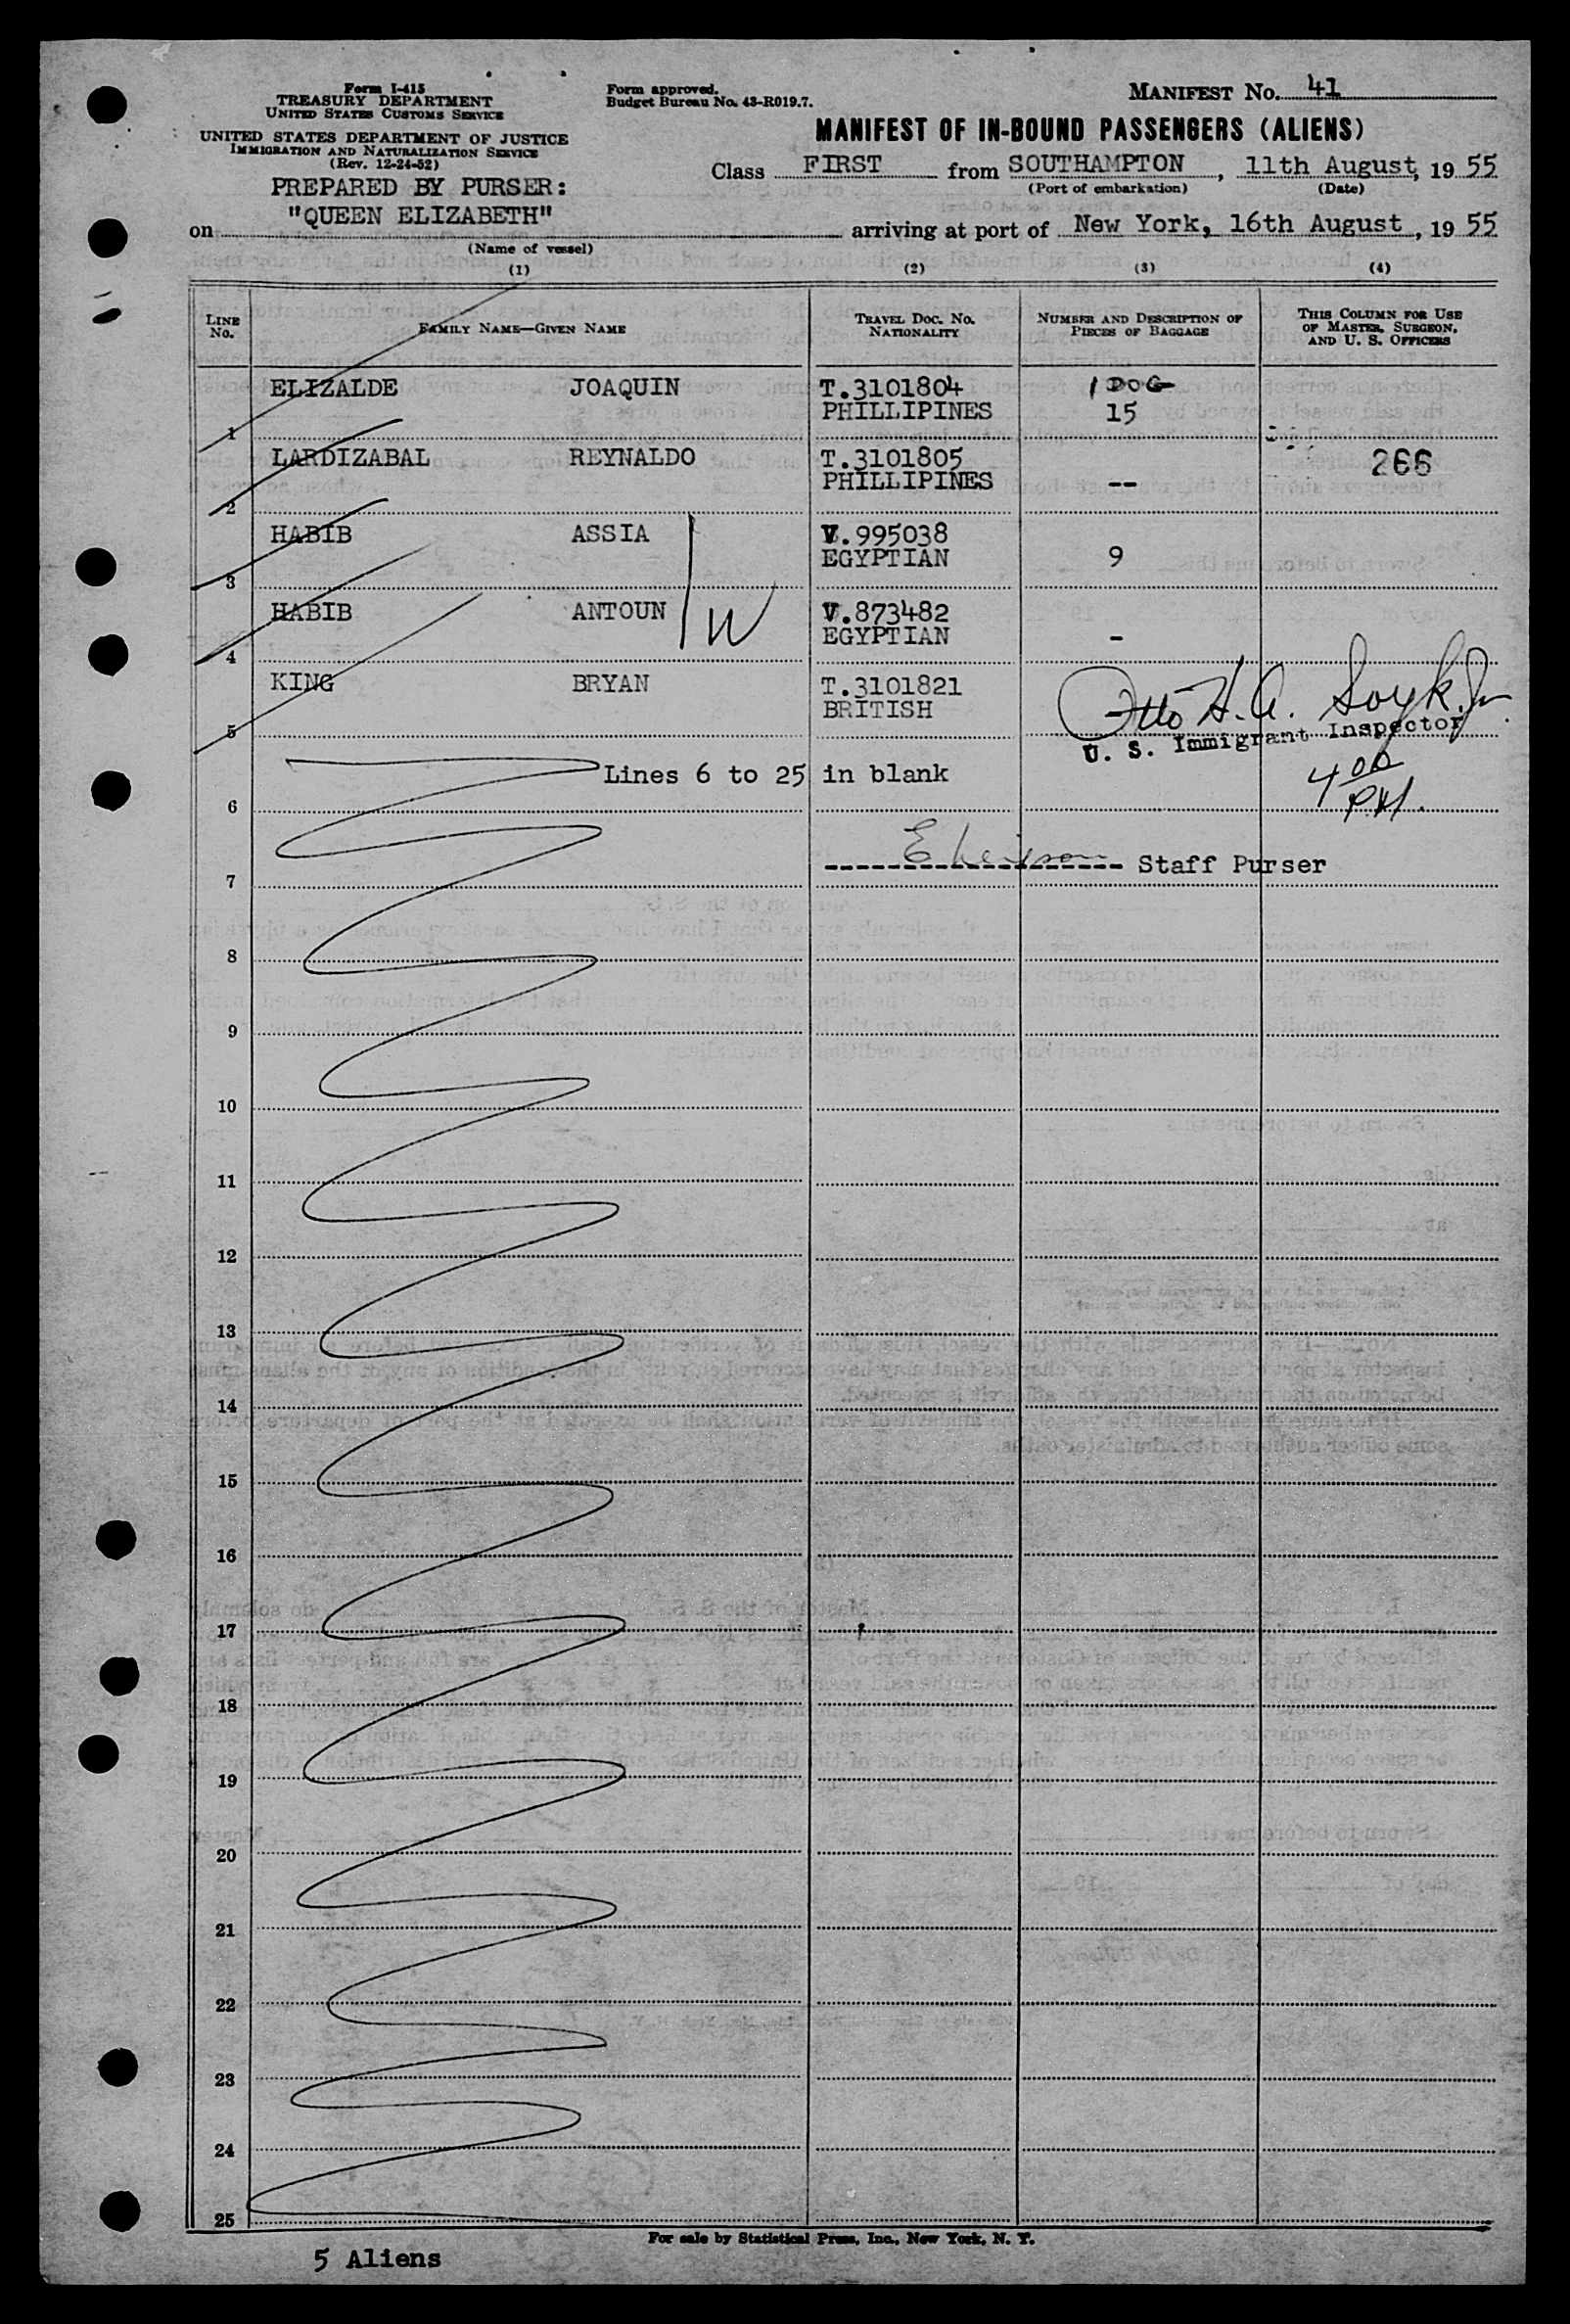 Form I-415
TREASURY DEPARTMENT
UNITED STATES CUSTOMS SERVICE
UNITED STATES DEPARTMENT OF JUSTICE
IMMIGRATION AND NATURALIZATION SERVICE
(Rev. 12-24-52)
PREPARED BY PURSER:
Form approved.
Budget Bureau No. 43-R019.7.
MANIFEST NO. 41
MANIFEST OF IN-BOUND PASSENGERS (ALIENS)
Class FIRST from SOUTHAMPTON, 11th August, 19 55
(Port of embarkation) (Date)
on "QUEEN ELIZABETH" arriving at port of New York, 16th August, 19 55
(Name of vessel)
(1) (2) (3) (4)
LINE NO. FAMILY NAME—GIVEN NAME TRAVEL DOC. NO. NATIONALITY NUMBER AND DESCRIPTION OF PIECES OF BAGGAGE THIS COLUMN FOR USE OF MASTER, SURGEON, AND U. S. OFFICERS
ELIZALDE JOAQUIN T.3101804 1 DOG
PHILLIPINES 15
1
LARDIZABAL REYNALDO T.3101805 266
PHILLIPINES --
2
HABIB ASSIA V.995038
EGYPTIAN 9
3
HABIB ANTOUN W V.873482
EGYPTIAN -
4
KING BRYAN T.3101821
BRITISH
5
Otto H. A. Soyk Jr
U. S. Immigrant Inspector
4 00 PM.
Lines 6 to 25 in blank
6
Staff Purser
7
8
9
10
11
12
13
14
15
16
17
18
19
20
21
22
23
24
25
For sale by Statistical Press, Inc., New York, N. Y.
5 Aliens